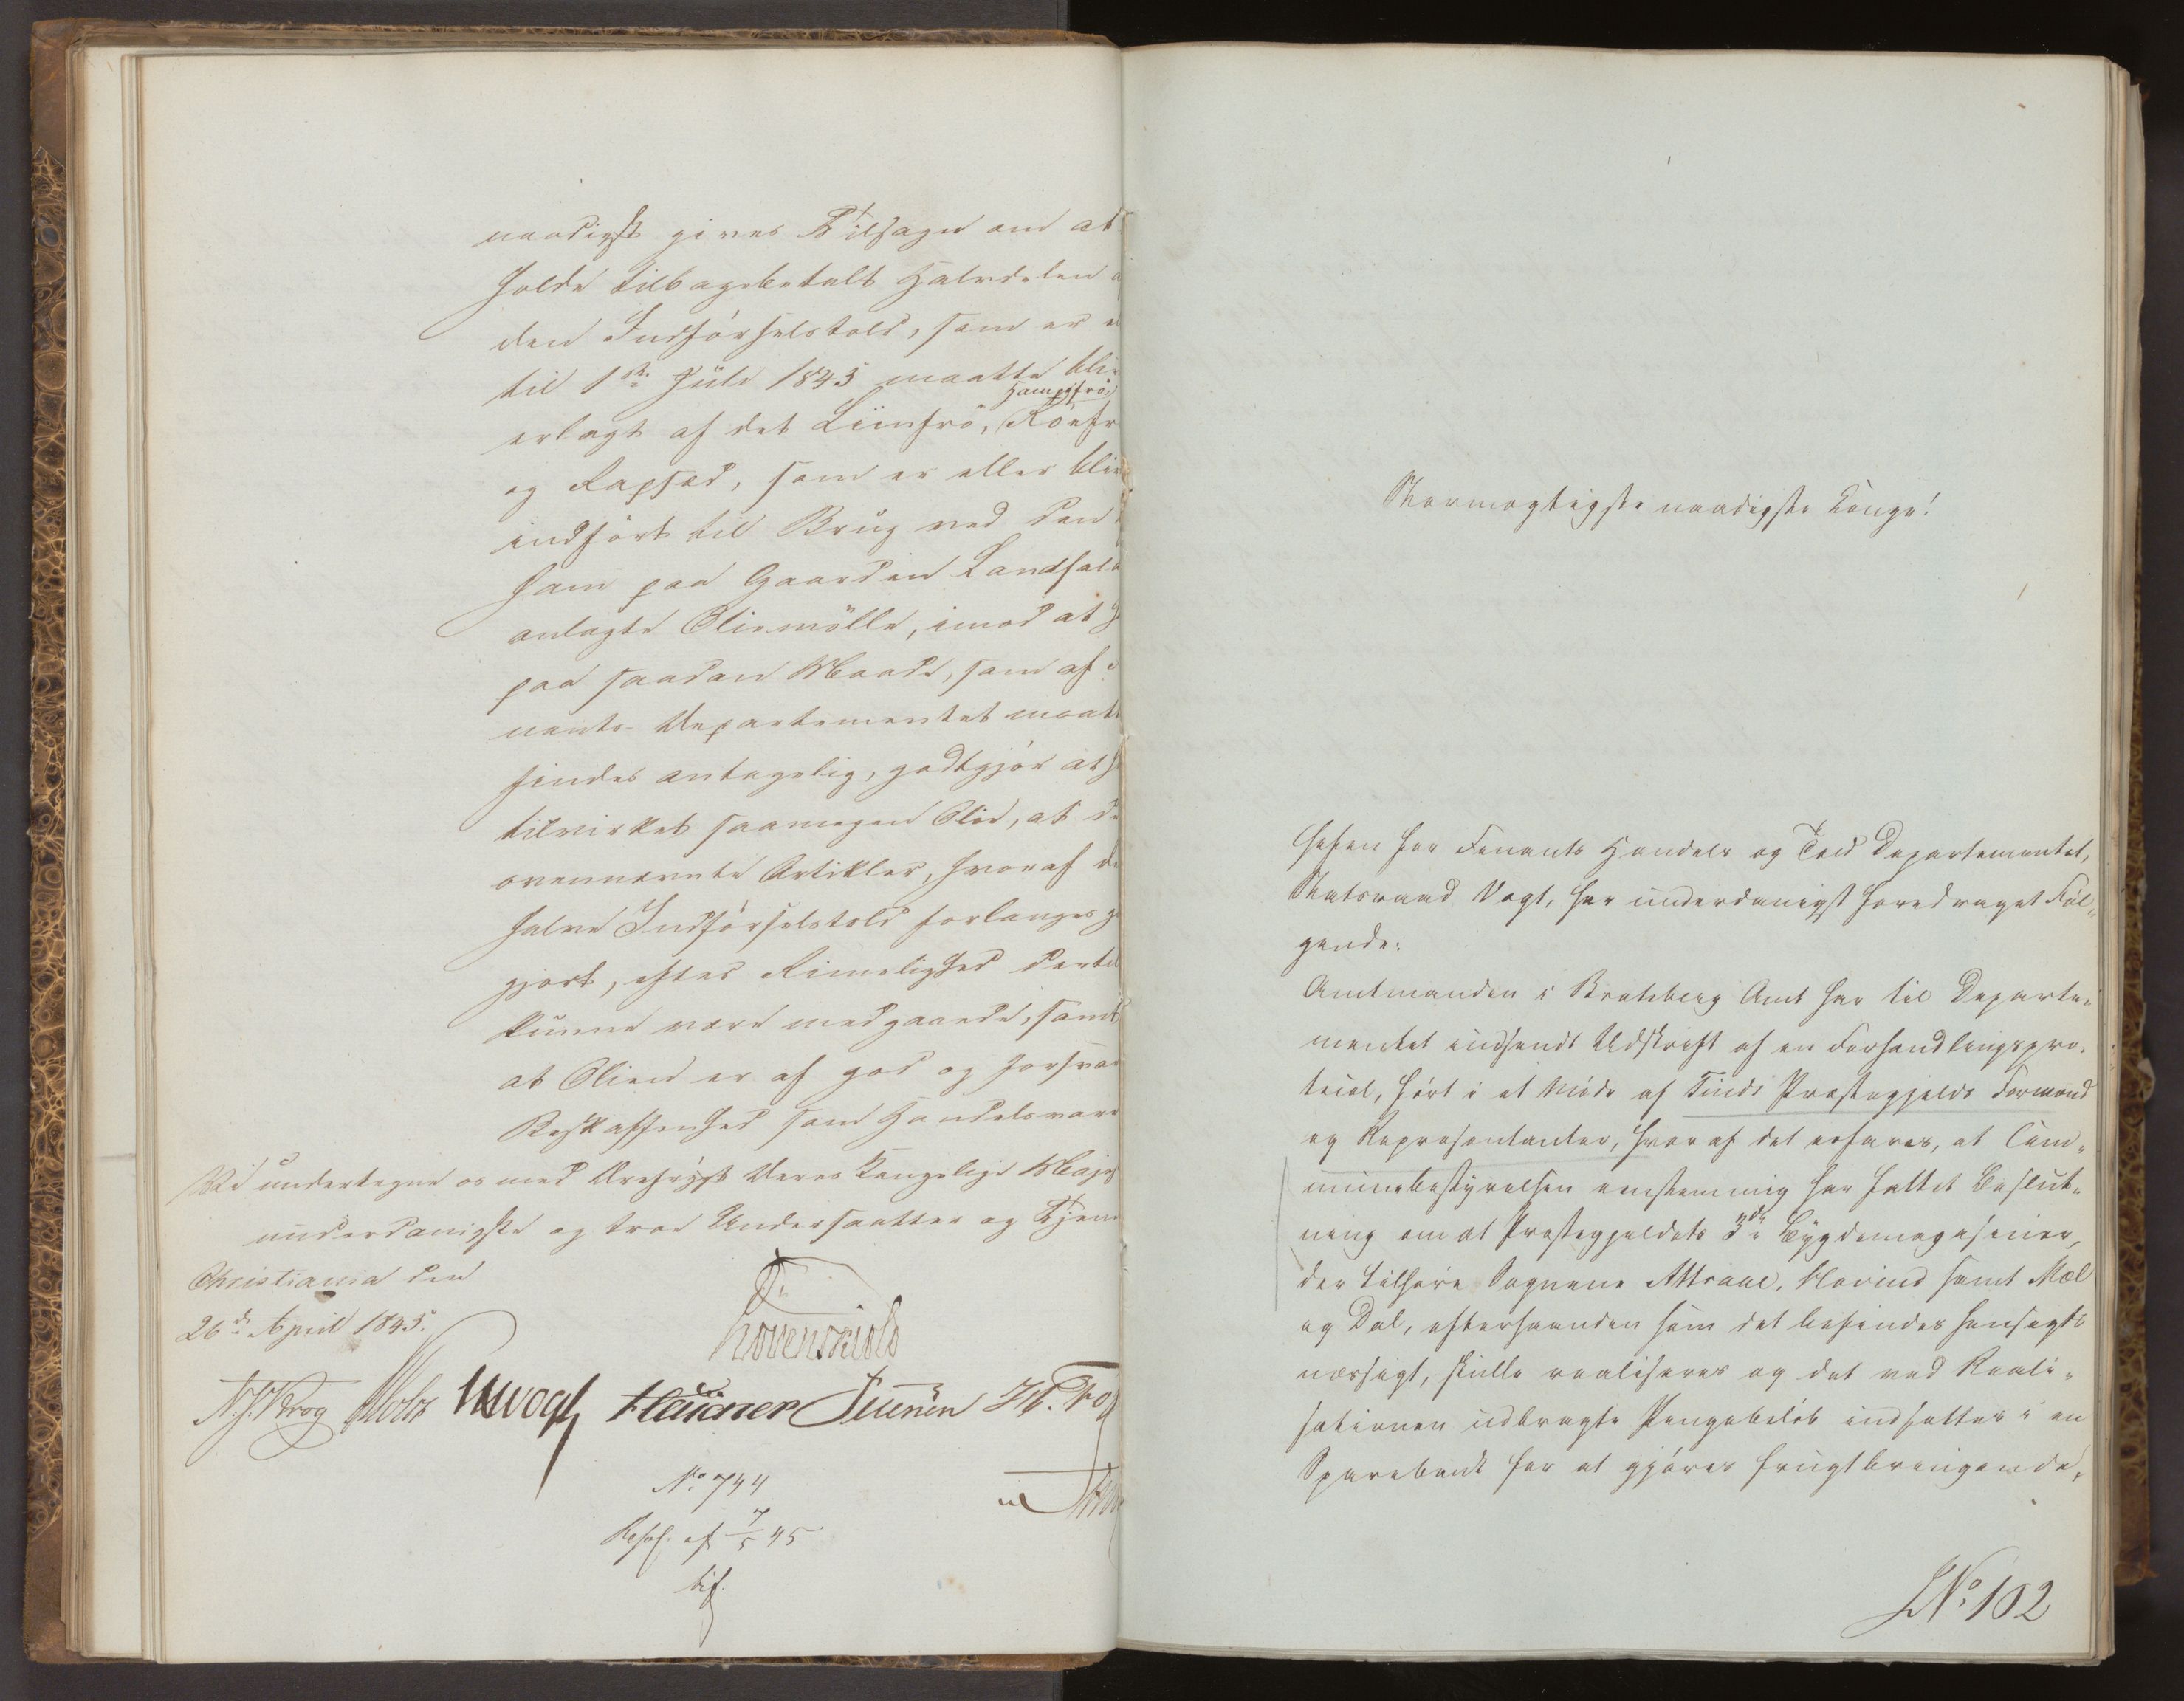 naadigst gives Tilsagn om at
holde tilbagebetalt Halvdelen
den Indførselstold, som er
til 1ste Juli 1845 maatte bli
Hampefrö
erlagt af det Liinfrö, Roefr
og Rapsæd, som er eller bliv
indført til Brug ved den
ham paa Gaarden Landfald
anlagte Oliemølle, imod at
paa saadan Maade, som af
nants-Departementet maatt
findes antagelig, godtgjør at
tilvirket saamegen Olie, at de
ovennævnte Artikler, hvoraf de
halve Indførselstold forlanges g
gjort, efter Rimelighed dertil
kunne være medgaaede, samt
at Olien er af god og forsvar
Beskaffenhed som Handelsvare
Vi undertegne os med Ærefrygt Deres Kongelige Majes
underdanigste og troe Undersaatter og Tjene
Christiania den
26de April 1845.
Løvenskiold
N. J. Krog Motz Vogt Hauener
No 744
Resol. af 7/5 45
Stormægtigste naadigste Konge!
Chefen for Finants Handels og Told Departementet,
Statsraad Vogt, har underdanigst foredraget Føl-
gende:
Amtmanden i Bratsberg Amt har til Departe-
mentet indsendt Udskrift af en Forhandlingspro-
tocol, ført i et Møde af Tinds Præstegjelds Formænd
og Repræsentanter, hvoraf det erfares, at Com-
munebestyrelsen eenstemmig har fattet Beslut-
ning om at Præstegjeldets 3de Bygdemagasiner,
der tilhøre Sognene Attraae, Hovind samt Mæl
og Dal, efterhaanden som det befindes hensigts-
mæssigt, skulle realiseres og det ved Reali-
sationen udbragte Pengebeløb indsættes i en
Sparebank for at gjøres frugtbringende,
No 102